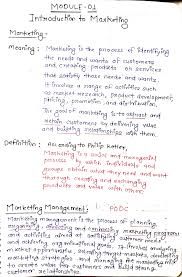 MODULE-01
Introduction to Marketing
Marketing:-
Meaning: Marketing is the process of identifying
the needs and wants of customers
and creating products or services
that satisfy those needs and wants.
It involves a range of activities such
as market research, product development
pricing, promotion, and distribution.
The goal of marketing is to attract and
retain customers by delivering value
and building relationships with them.
Definition: According to Philip Kotler,
Marketing is a social and managerial
process by which individuals and
groups obtain what they need and want
through creating and exchanging
products and value with others.
Marketing Management: PODC
Marketing management is the process of planning,
organizing, directing and controlling marketing programs
and activities aimed at satisfying customer needs
and achieving organizational goals. It involves analyzing
market opportunities, selecting target markets,
to create value for customers and build strong
customer relationships.